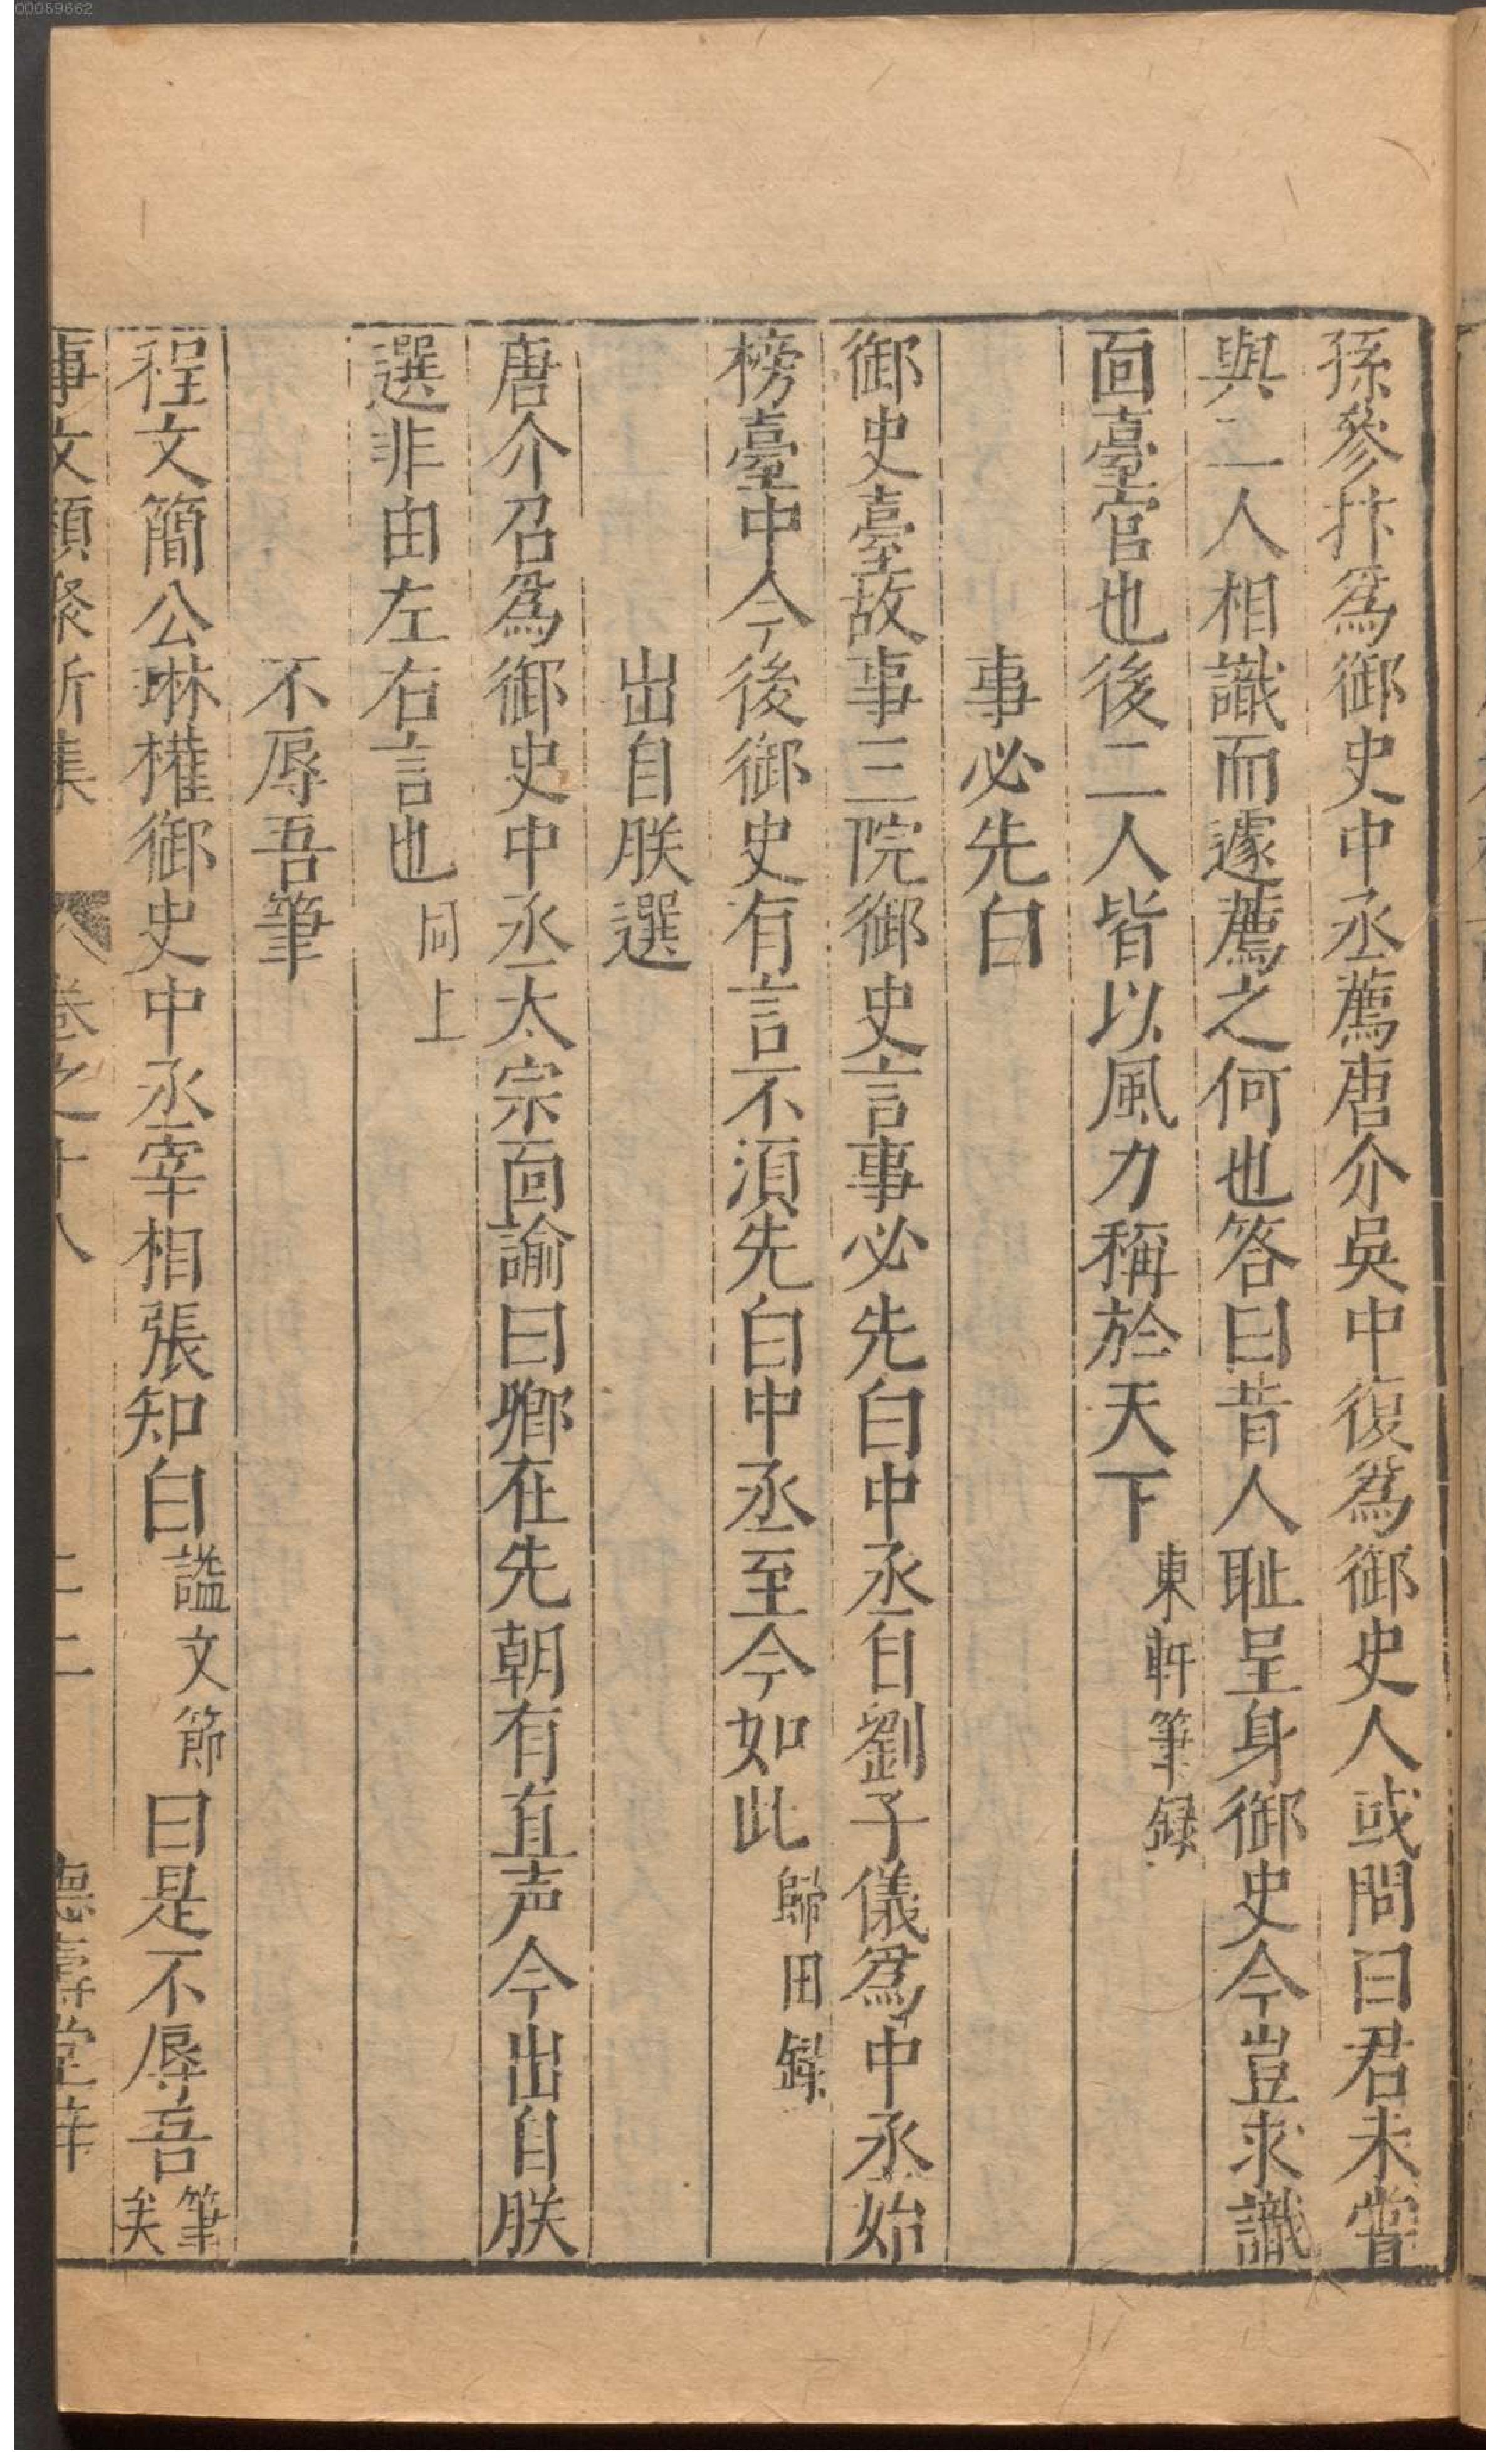 00059662
孫參抃爲御史中丞薦唐介吳中復爲御史人或問曰君未嘗
與二人相識而遽薦之何也答曰昔人耻呈身御史今豈求識
面臺官也後二人皆以風力稱於天下東軒筆録
事必先白
御史臺故事三院御史言事必先白中丞自劉子儀爲中丞始
榜臺中今後御史有言不須先白中丞至今如此歸田録
出自朕選
唐介召爲御史中丞太宗面諭曰卿在先朝有直声今出自朕
選非由左右言也同上
不辱吾筆
程文簡公琳權御史中丞宰相張知白謚文節曰是不辱吾筆矣
事文類聚新集 卷之十八 二十二 德壽堂梓